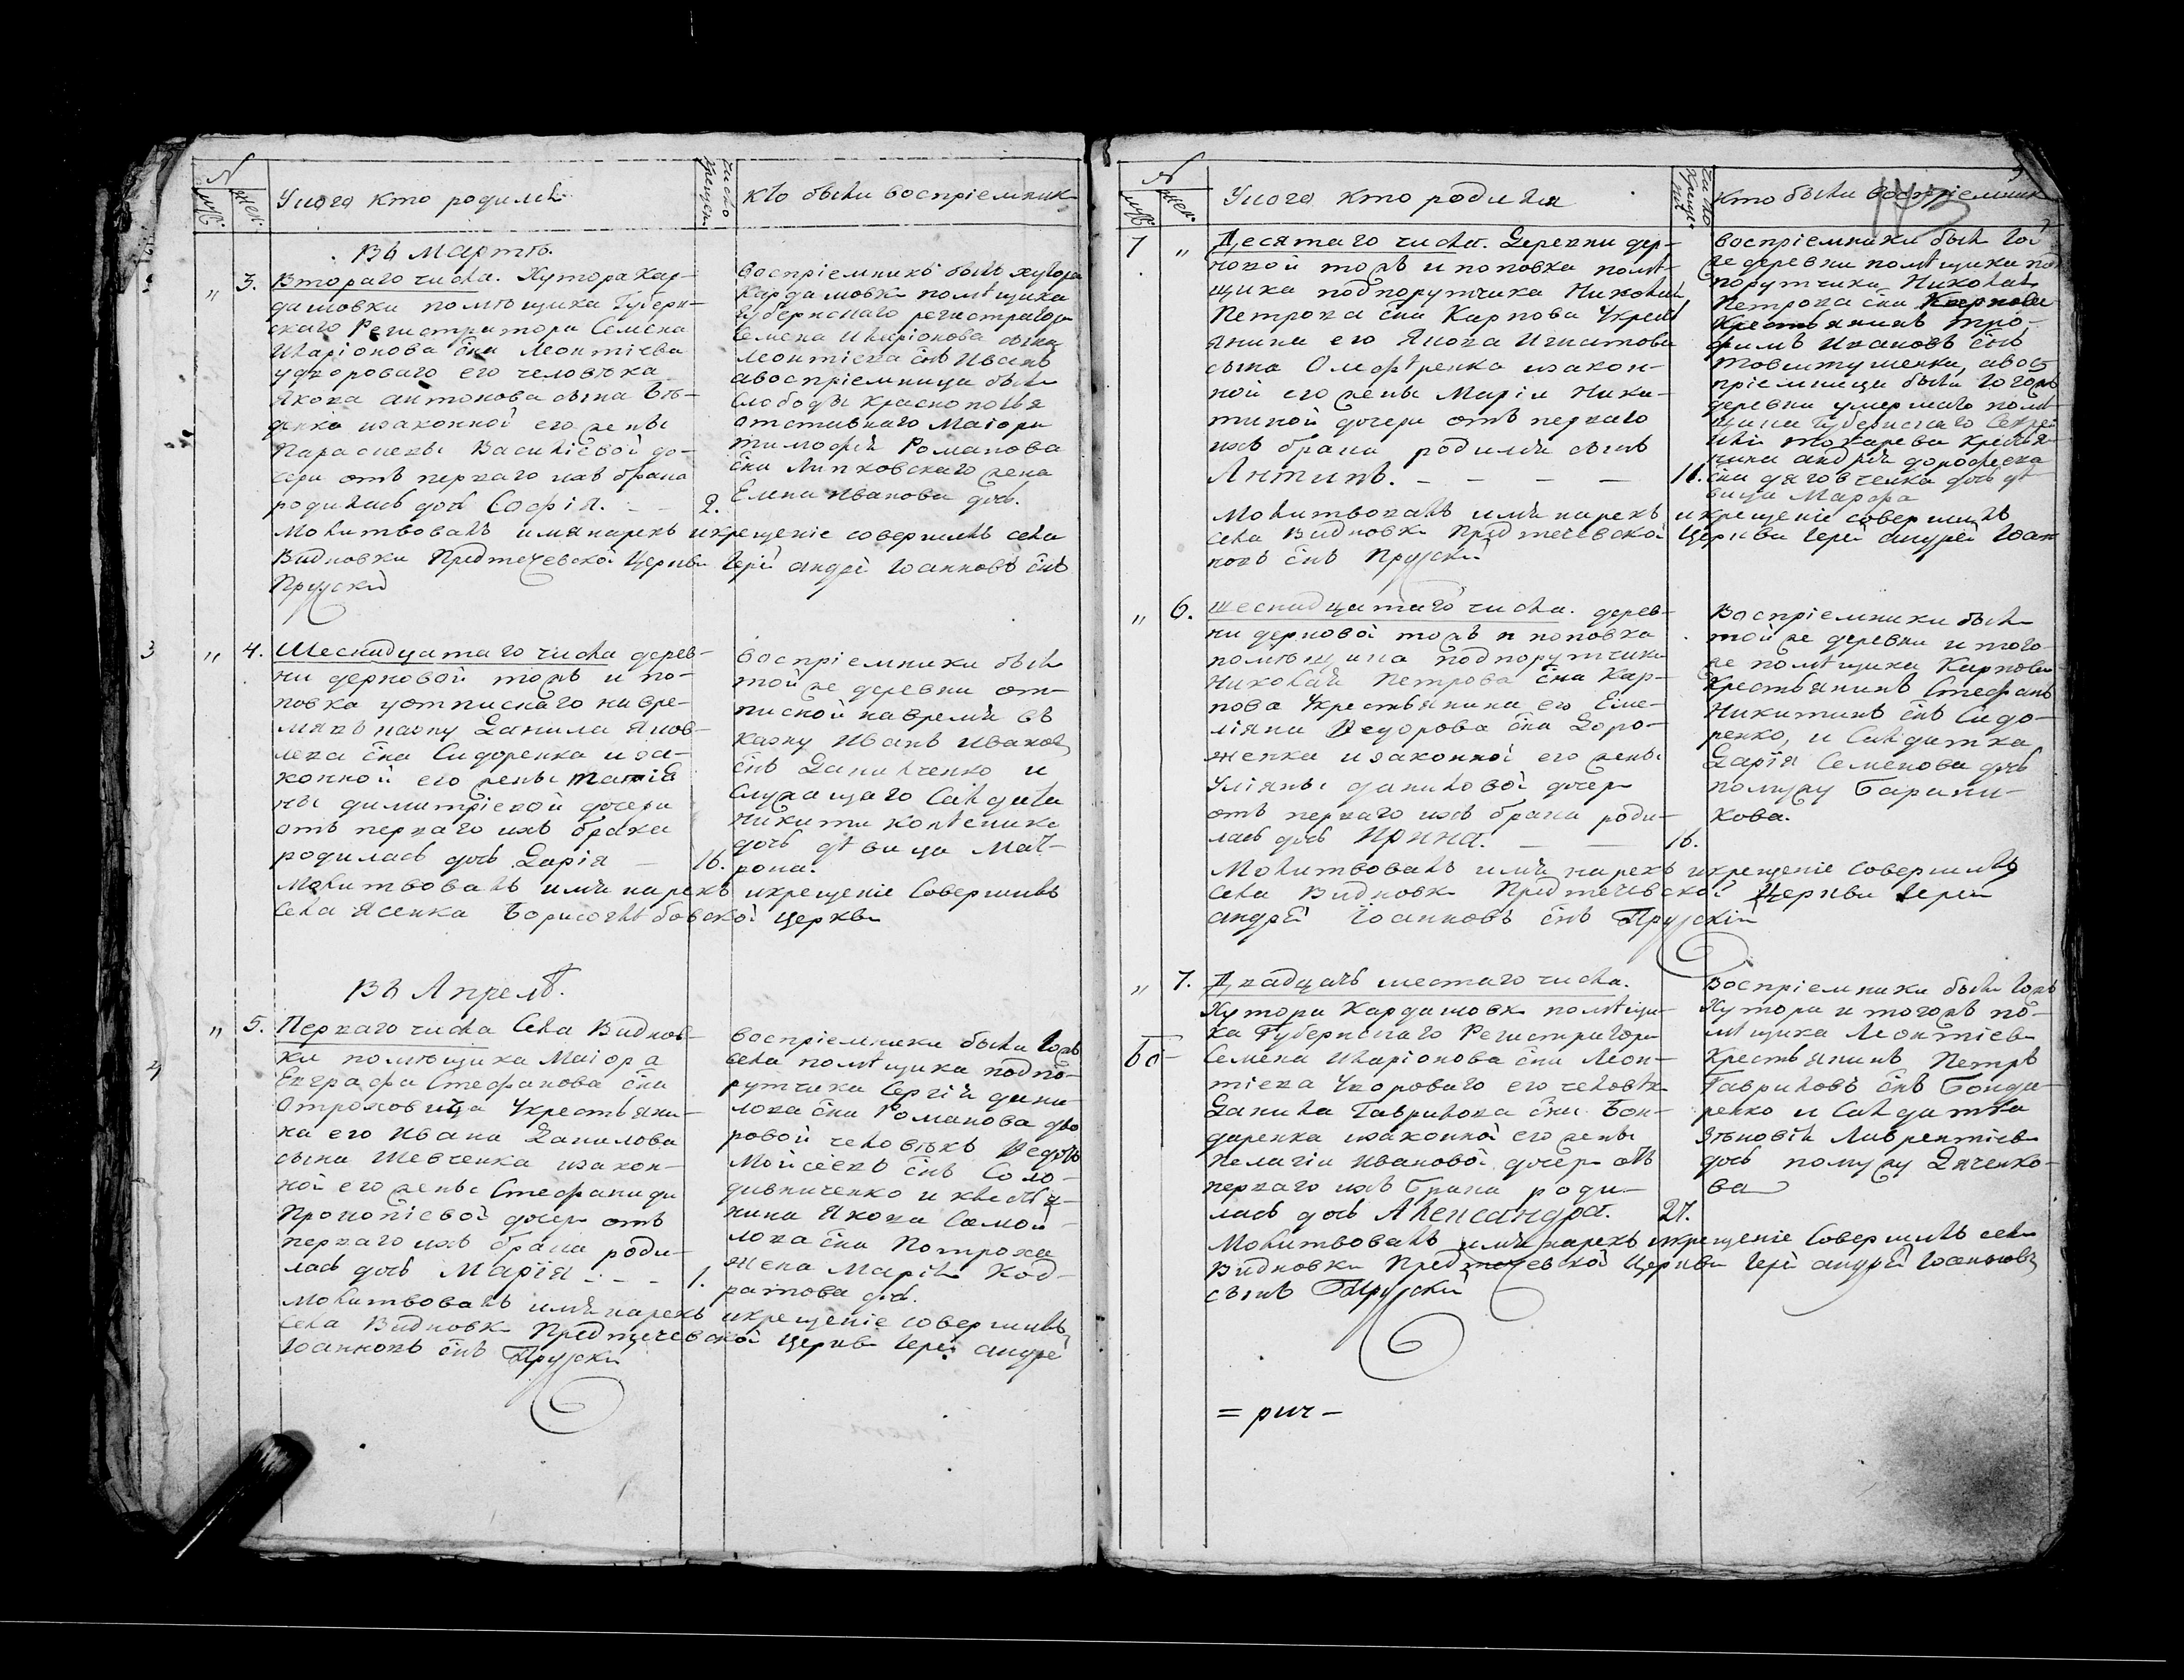 N
муж.
жен.
У кого кто родился
число крещен.
кто были восприемник
Въ Мартѣ.
„ 3. Втораго числа. Хутора Кар-
дашовки помѣщика Губерн-
скаго Регистратора Семена
Иларіонова сна Леонтіева
у двороваго его человѣка
Якова Антонова сына
изаконной его жены
Параскевы Василіевой до-
чери отъ перваго ихъ брака
родилась дочь Софія. 2.
восприемникъ былъ хутора
Кардашовк помѣщика
Губернскаго регистратора
Семена Иларіонова сына
Леонтіева снъ Иванъ
авосприемница была
Слободы Краснополья
отставнаго Маіора
Тимофей Романова
сна Липковскаго жена
Елена Иванова доч.
Молитвовалъ имя нарекъ икрещеніе совершилъ села
Видновки Предтечевской Церкви Іерей Андрей Іоанновъ снъ
Прусскій
3
„ 4. Шеснадцатаго числа дерев-
ни дерновой тожъ и по-
повка уотписнаго навре-
мя въ казну Данила Яков-
лева сна Сидоренка иза-
конной его жены Татiя
ны Димитріевой дочери
отъ перваго ихъ брака
родилась дочь Дарія — 16.
восприемники были
той же деревни от-
писной на время въ
казну Иванъ Ивановъ
снъ Данилченко и
служащаго Салдата
Никиты
дочь дѣвица Мат-
рона.
Молитвовалъ имя нарекъ икрещеніе Совершилъ
Села Ясенка Борисоглѣбовской церкви
Въ Апрелѣ.
4
„ 5. Перваго числа Села Виднов-
ки помѣщика Маіора
Евграфа Стефанова сна
Отроховича Укрестьяни-
на его Ивана Данилова
сына Шевченка изакон-
ной его жены Стефаниды
Прокопіевой дочер отъ
перваго ихъ брака роди-
лась дочь Марія - - - 1.
восприемники были тожъ
села помѣщика подпо-
рутчика Сергія Дани-
лова сна Романова дво
ровой человѣкъ Федоръ
Мойсеевъ снъ Соло-
дивниченко и крестья-
нина Якова Самой-
лова сна Потроха
жена Марія Код-
ратова доч.
Молитвовалъ имя нарекъ икрещеніе совершилъ
села Видновк Предтечевской церкви Іерей Андрей
Іоанновъ снъ Прусскій
N
муж.
жен.
У кого кто родился
число крещенія
Кто были восприемник
7 „ Десятаго числа. Деревни дер-
новой тожъ и поповка помѣ-
щика подпорутчика Николая
Петрова сна Карпова Укресть
янина его Якова Игнатова
сына Олефѣренка изакон-
ной его жены Маріи Ники-
тиной дочери отъ перваго
ихъ брака родился сынъ
Антипъ. — — — — 11.
восприемники были той
же деревни помѣщика под
порутчика Николая
Петрова сна Карпова
Крестьянинъ Тро-
фимъ Ивановъ снъ
Товштушенка, авос
приемница была тогожъ
деревни умершаго помѣ-
щика Губернскаго Секре
Токарева крестья-
нина Андрѣя Дорофеева
сна Дяговченка дочь дѣ
вица Марфа
Молитвовалъ имя нарекъ икрещеніе совершилъ
села Видновк Предтечевской Церкви Іерей Андрей Іоан
новъ снъ Прусскій
„ 6. Шеснадцатаго числа. дерев-
ни дерновой тожъ и поповка
помѣщика подпорутчика
Николая Петрова сна Кар-
пова Укрестьянина его Еме-
ліяна Федорова сна Доро-
женка изаконной его жены
Уліяны Даниловой дочер
отъ перваго ихъ брака роди-
лась дочь Ирина. — — 16.
Восприемники были
той же деревни и того
же помѣщика Карпова
Крестьянинъ Стефанъ
Никитинъ снъ Сидо-
ренко, и Салдатка
Дарія Семенова дочь
помужу Барани-
кова.
Молитвовалъ имя нарекъ икрещеніе совершилъ
села Видновк Предтечевской Церкви Іерей
Андрей Іоанновъ снъ Прусскій
„ 7. Двадцать шестаго числа.
Хутора Кардашовк помѣщи-
ка Губернскаго Регистратора
Семена Иларіонова сна Леон-
тіева Удвороваго его человѣк
Данила Гаврилова сна Бон-
даренка изаконной его жены
Пелагіи Ивановой дочер отъ
перваго ихъ брака роди-
лась дочь Александра. 27.
Восприемники были тожъ
Хутора и тогожъ по-
мѣщика Леонтіева
Крестьянинъ Петръ
Гавриловъ снъ Бонда-
ренко и Салдатка
Зѣновія Лаврентіева
дочь помужу Дяченко-
ва
Молитвовалъ имя нарекъ икрещеніе Совершилъ села
Видновки Предтечевской Церкви Іерей Андрей Іоанновъ
сынъ Прусскій
= рич —